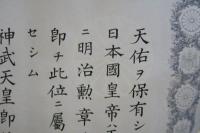 天佑ヲ保有シ
日本國皇帝
ニ明治勲章
卽チ此位ニ屬
セシム
神武天皇卽